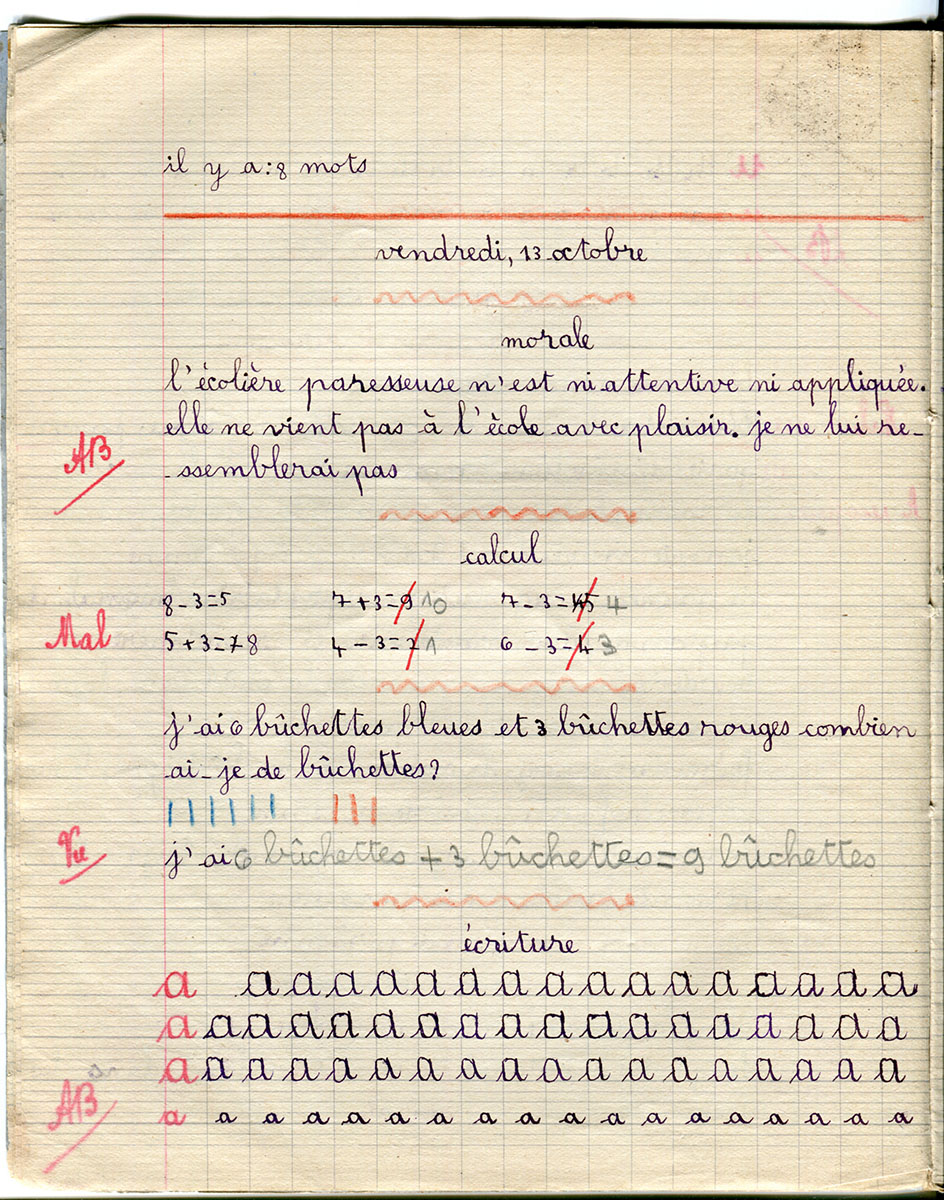 il y a : 8 mots
vendredi, 13 octobre
morale
l'écolière paresseuse n'est ni attentive ni appliquée.
elle ne vient pas à l'école avec plaisir. je ne lui re-
AB
-ssemblerai pas
calcul
8 - 3 = 5 7 + 3 = 9 10 7 - 3 = 45 4
Mal
5 + 3 = 7 8 4 - 3 = 2 1 6 - 3 = 4 3
j'ai 6 bûchettes bleues et 3 bûchettes rouges combien
ai-je de bûchettes?
Vu
j'ai 6 bûchettes + 3 bûchettes = 9 bûchettes
écriture
a a a a a a a a a a a a a a a a a
a a a a a a a a a a a a a a a a a a
a a a a a a a a a a a a a a a a a a
AB
a a a a a a a a a a a a a a a a a a